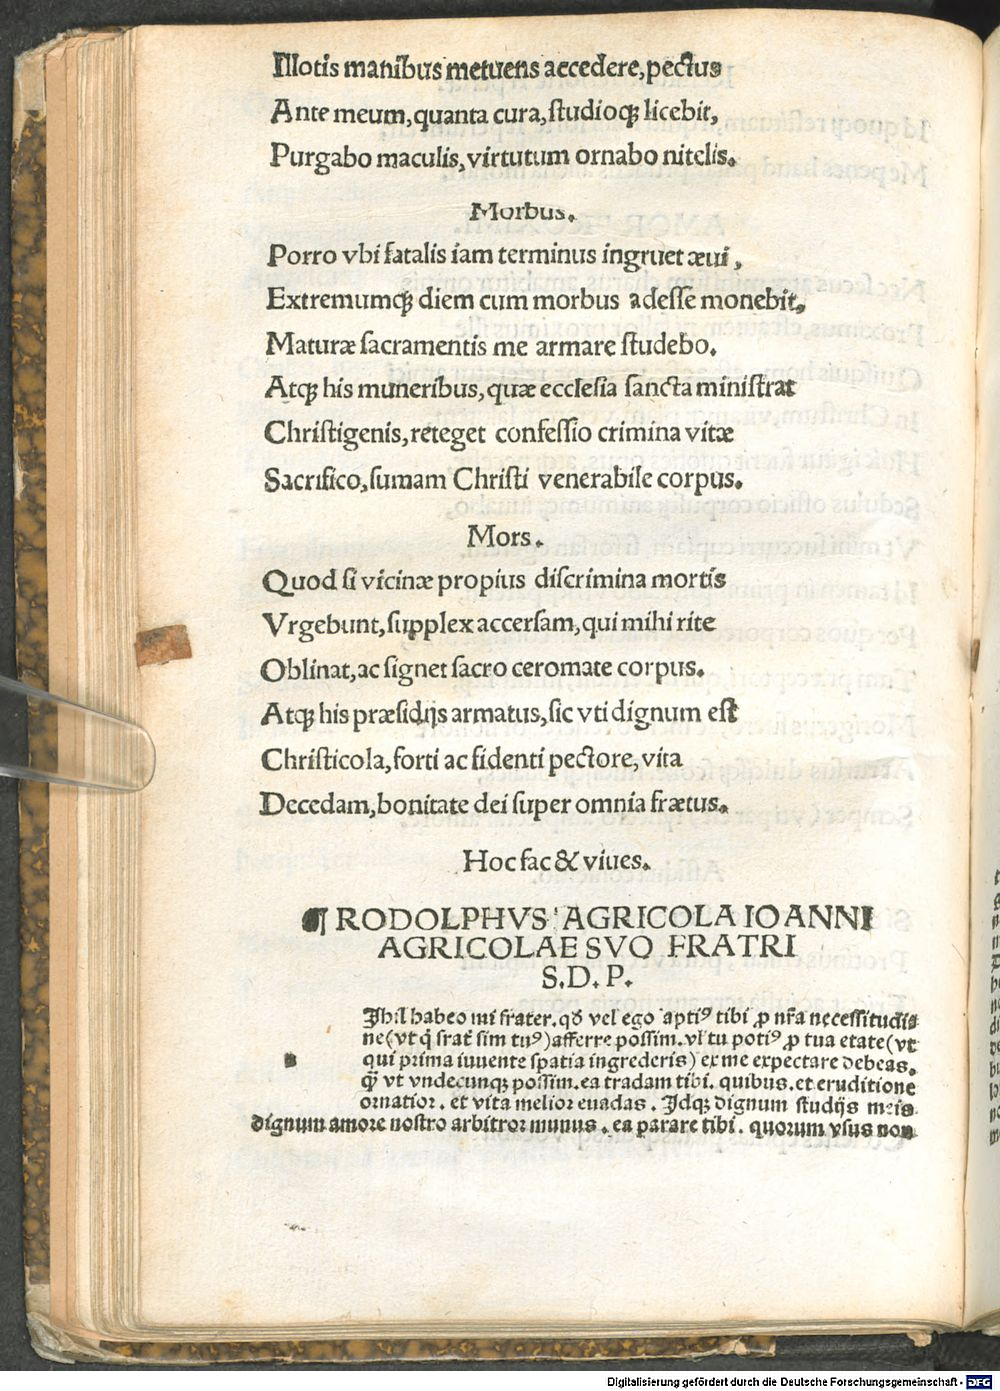 Illotis manibus metuens accedere, pectus
Ante meum, quanta cura, studioqꝫ licebit,
Purgabo maculis, virtutum ornabo nitelis.
Morbus.
Porro vbi fatalis iam terminus ingruet æui,
Extremumqꝫ diem cum morbus adesse monebit,
Maturæ sacramentis me armare studebo.
Atqꝫ his muneribus, quæ ecclesia sancta ministrat
Christigenis, reteget confessio crimina vitæ
Sacrifico, sumam Christi venerabile corpus.
Mors.
Quod si vicinæ propius discrimina mortis
Vrgebunt, supplex accersam, qui mihi rite
Oblinat, ac signet sacro ceromate corpus.
Atqꝫ his præsidijs armatus, sic vti dignum est
Christicola, forti ac fidenti pectore, vita
Decedam, bonitate dei super omnia frætus.
Hoc fac & viues.
¶ RODOLPHVS AGRICOLA IOANNI
AGRICOLAE SVO FRATRI
S.D.P.
Ihil habeo mi frater. qđ vel ego aptiꝰ tibi ꝓ nr̄a necessitudi
ne (vt q̄ frat̄ sim tuꝰ) afferre possim. vl' tu potiꝰ ꝓ tua etate (vt
qui prima iuuente spatia ingrederis) ex me expectare debeas.
q̄ vt vndecunqꝫ possim. ea tradam tibi. quibus. et eruditione
ornatior. et vita melior euadas. Idqꝫ dignum studijs meis
dignum amore nostro arbitror munus. ea parare tibi. quorum vsus non
Digitalisierung gefördert durch die Deutsche Forschungsgemeinschaft - DFG